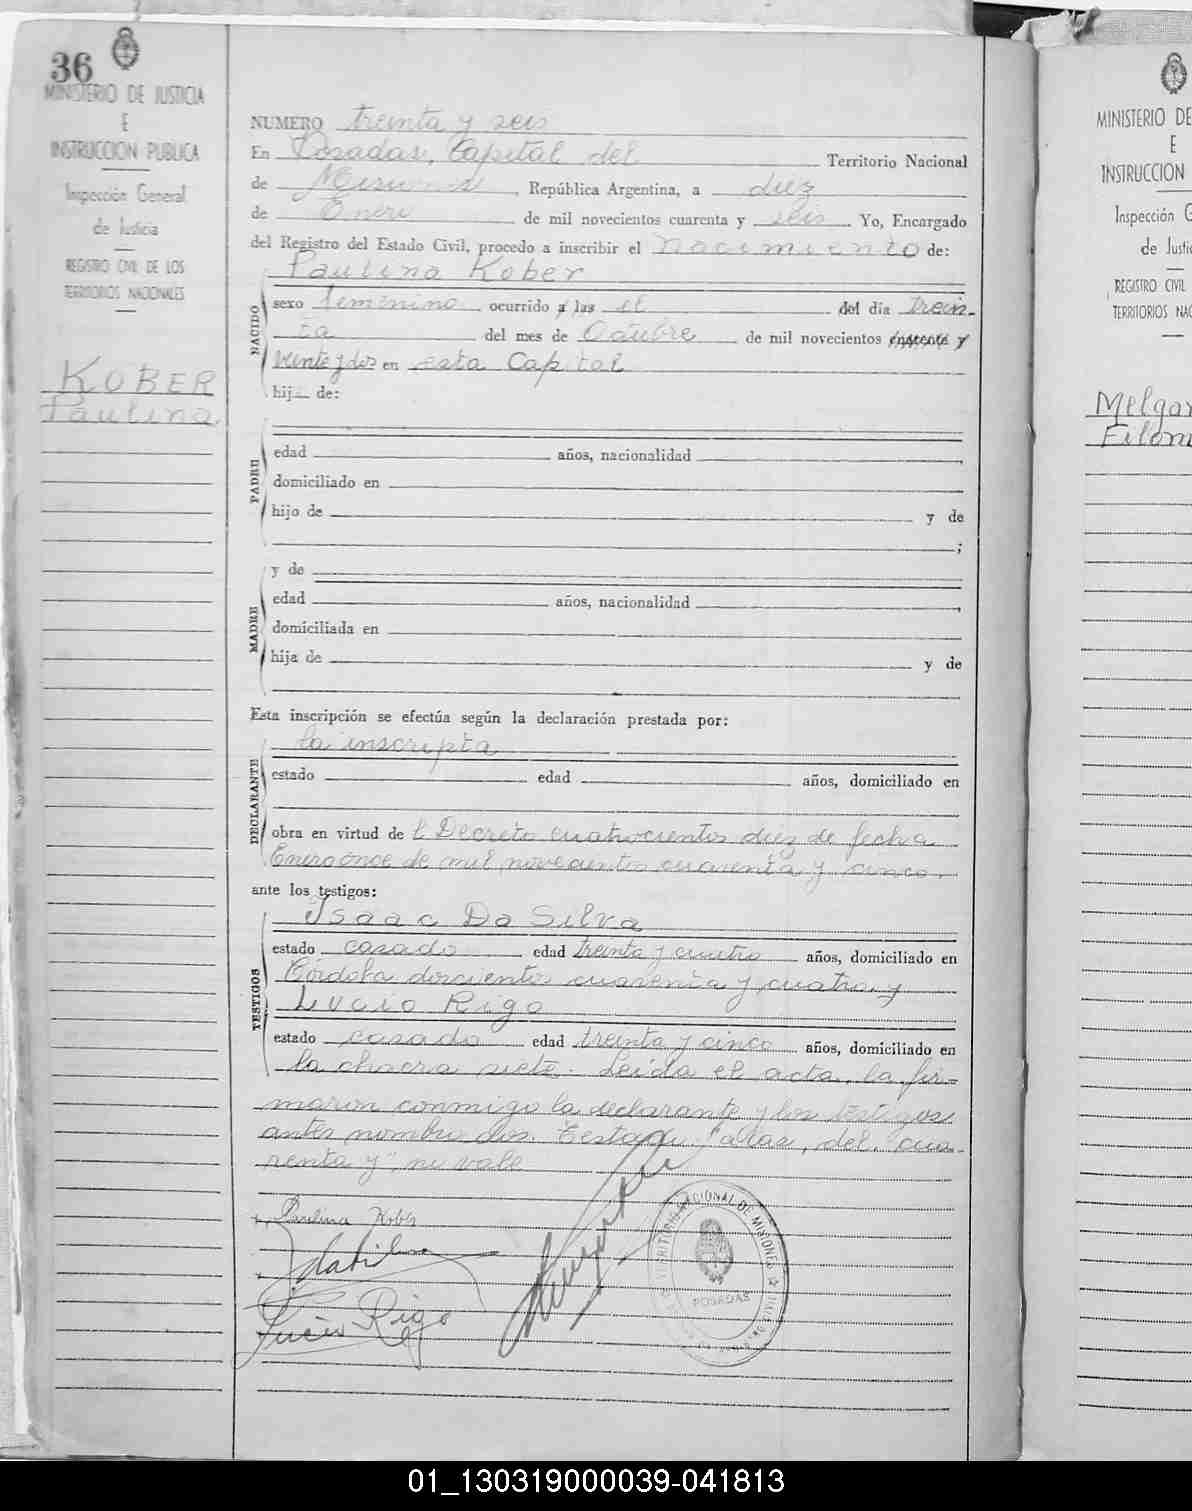 36
MINISTERIO DE JUSTICIA
E
INSTRUCCION PUBLICA
Inspección General
de Justicia
REGISTRO CIVIL DE LOS
TERRITORIOS NACIONALES
KOBER
Paulina
NUMERO treinta y seis
En Posadas, Capital del Territorio Nacional
de Misiones, República Argentina, a diez
de Enero de mil novecientos cuarenta y seis Yo, Encargado
del Registro del Estado Civil, procedo a inscribir el nacimiento de:
Paulina Kober
NACIDO
sexo femenino, ocurrido a las el del día trein-
ta del mes de Octubre de mil novecientos cuarenta y
veinte y dos en esta Capital
hij de:
PADRE
edad años, nacionalidad
domiciliado en
hijo de y de
;
MADRE
y de
edad años, nacionalidad ,
domiciliada en
hija de y de
Esta inscripción se efectúa según la declaración prestada por:
DECLARANTE
la inscripta
estado edad años, domiciliado en
obra en virtud de l Decreto cuatrocientos diez de fecha
Enero once de mil novecientos cuarenta y cinco.
ante los testigos:
TESTIGOS
Isaac Da Silva
estado casado edad treinta y cuatro años, domiciliado en
Córdoba doscientos cuarenta y cuatro y
Lucio Rigo
estado casado edad treinta y cinco años, domiciliado en
la chacra siete. Leida el acta, la fir-
maron conmigo la declarante y los testigos
antes nombrados. Testado "a las, del, cua-
renta y", no vale
Paulina Kober
Lucio Rigo
POSADAS
MINISTERIO DE
E
INSTRUCCION
Inspección G
de Justic
REGISTRO CIVIL
TERRITORIOS NAC
Melgar
Filom
01_130319000039-041813